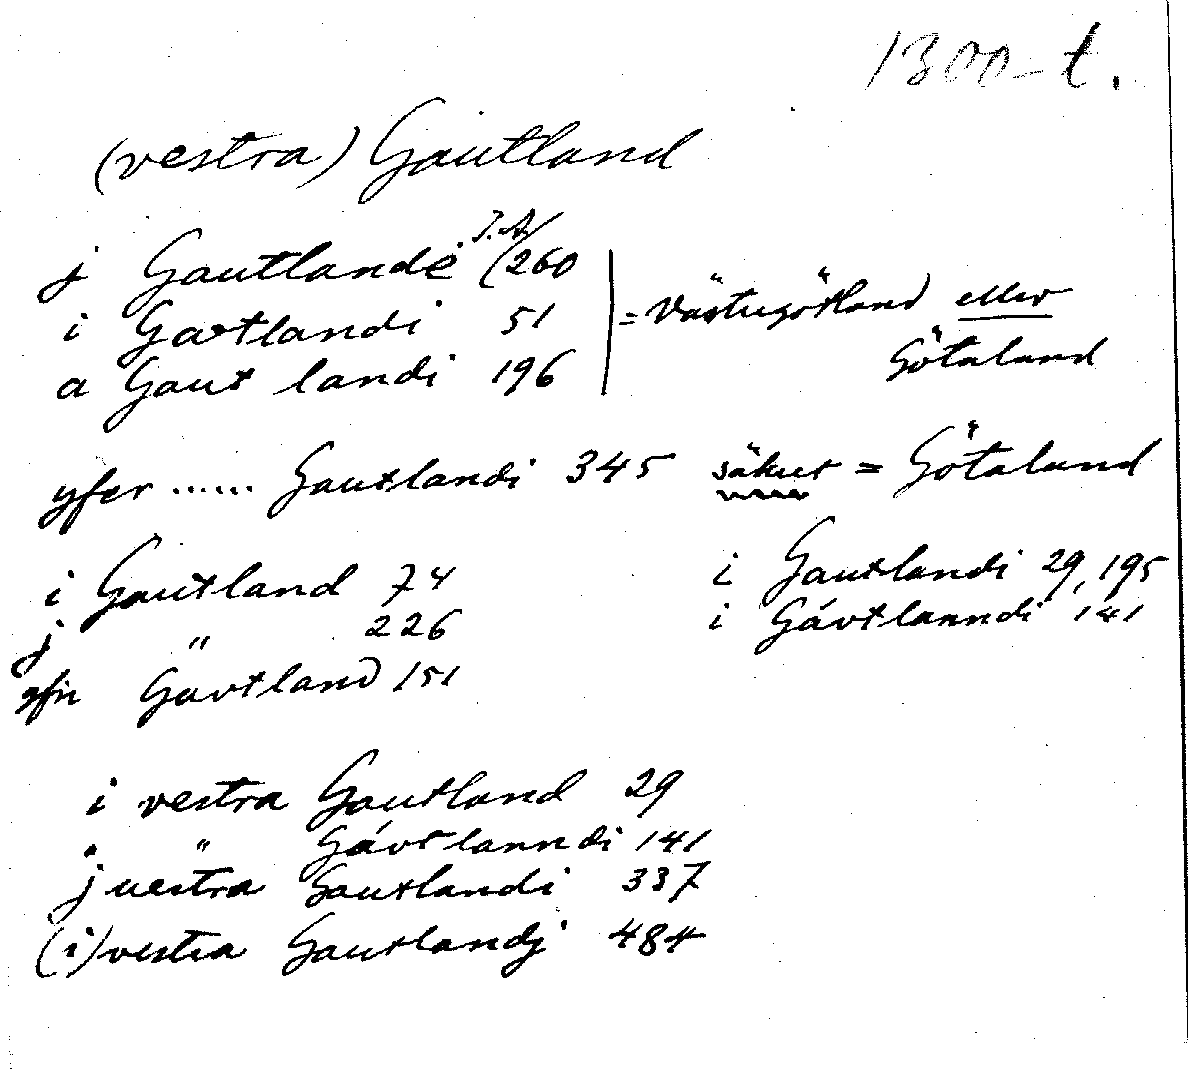 1300-t.
(vestra) Gautland
j Gautlande (260
i Gavtlandi 51 = Västergötland eller
a Gaut landi 196 Götaland
yfer ...... Gautlandi 345 säkert = Götaland
i Gautland 74 i Gautlandi 29, 195
j " 226 i Gávtlanndi 141
yfir Gavtland 151
i vestra Gautland 29
" " Gávtlanndi 141
j uestra Gautlandi 337
(i) vestra Gautlandj 484